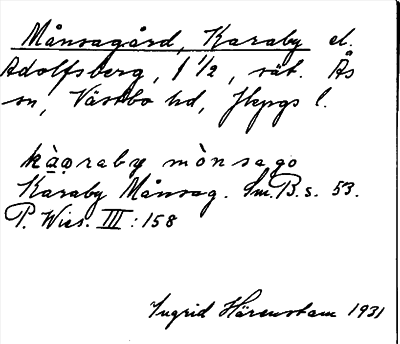 Månsagård, Karaby el.
Adolfsberg, 1 1/2, sät. Ås
sn, Västbo hd, Jkpgs l.
kàoraby mònsago
Karaby Månsag. Sm. B. s. 53.
P. Wies. III: 158
Ingrid Härenstam 1931